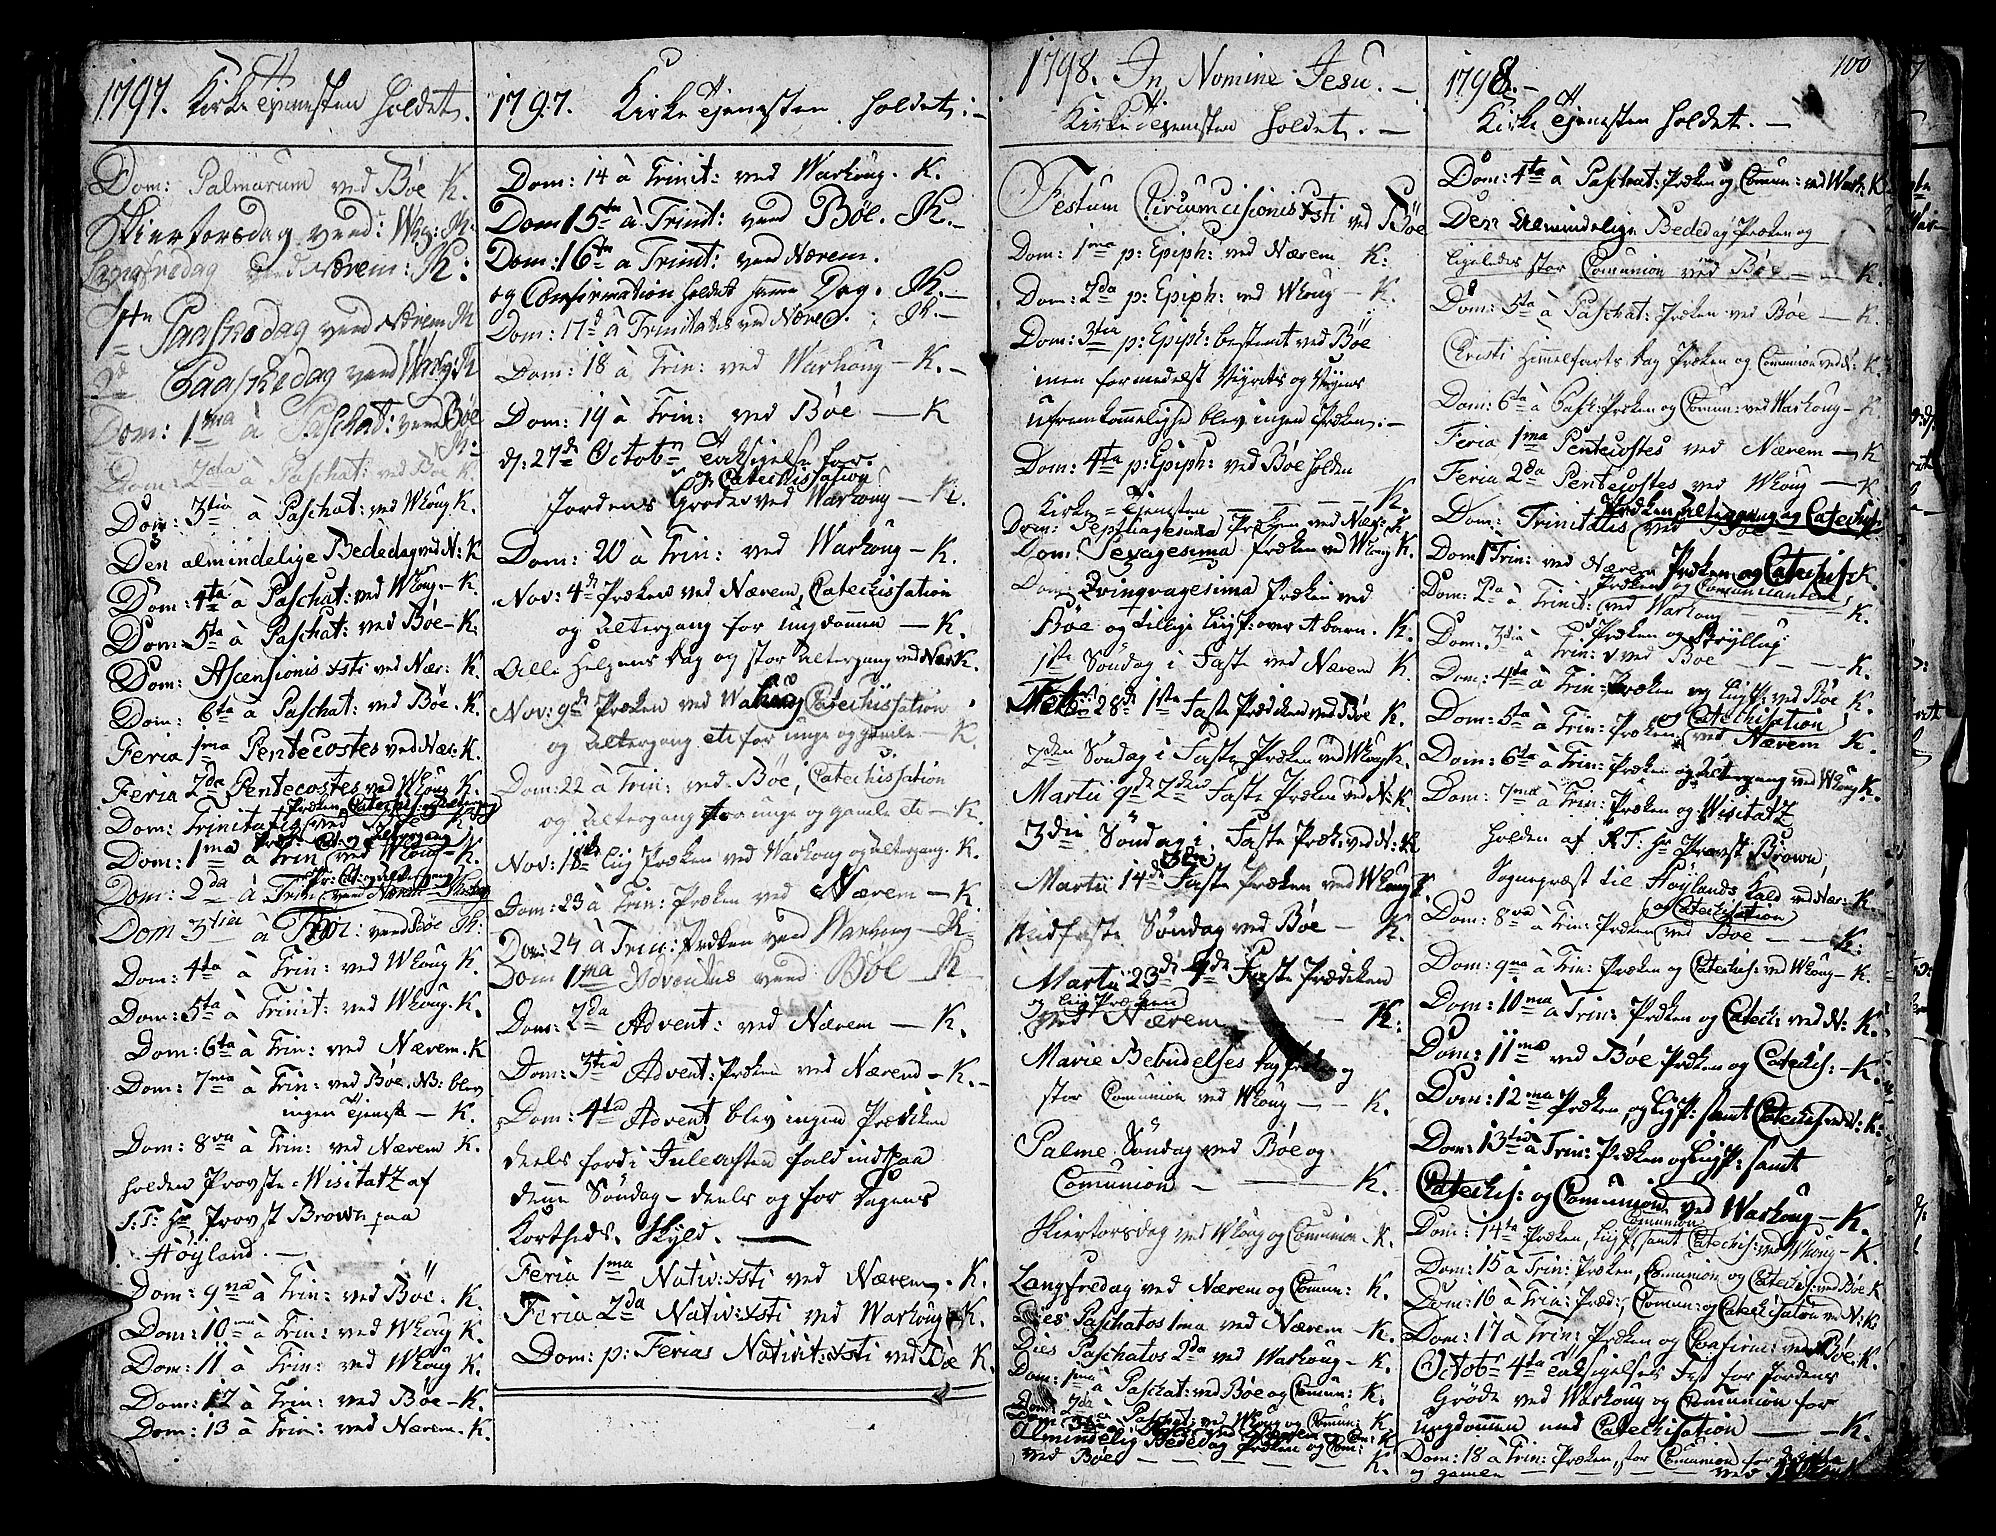 1797. Kirke Tjenesten holdet.
Dom: Palmarum ved Bøe K.
Skiertorsdag ved: Whg: K.
Langfredag ved Nærem: K:
1ste Paaskedag ved Nærem K
2d Paaskedag ved Warhg: K
Dom: 1ma à Paschat: ved Bøe
K:
Dom: 2da à Paschat: ved Bøe K.
Dom: 3tia à Paschat: ved Whoug K.
Den almindelige Bededag ved N: K
Dom: 4ta à Paschat: ved Whoug - K.
Dom: 5ta à Paschat: ved Bøe - K.
Dom: Ascensionis xsti ved Nær: K.
Dom: 6ta à Paschat: ved Bøe. K.
Feria 1ma Pentecostes ved Nær: K.
Feria 2da Pentecostes ved Whoug K.
Præken, Catechis: og altergang
Dom: Trinitatis ved Bøe K
Præk: Cat: og altergang
Dom: 1ma à Trin ved Whoug - K.
Pr: Cat: og altergang
Dom: 2da à Trin: ved Nærem
Dom 3tia à Trin: ved Bøe K:
Dom: 4ta à Trin: ved Whoug K.
Dom: 5ta à Trinit: ved Whoug. K.
Dom: 6ta à Trin: ved Nærem. K
Dom: 7ma à Trin: ved Bøe. NB: blev
ingen Tjeneste - K.
Dom: 8va à Trin: ved Nærem K.
holden Provste-Wisitatz af
S: T: Hr Provst Brown paa
Høyland. —
Dom: 9na à Trin: ved Bøe. K.
Dom: 10ma à Trin: ved Whoug K.
Dom: 11 à Trin: ved Whoug K.
Dom: 12 à Trin: ved Bøe - K.
Dom: 13 à Trin: ved Nærem. K.
1797. Kirke Tjenesten holdet: -
Dom: 14 à Trinit: ved Warhoug. K.
Dom 15ta à Trinit: ved Bøe. K. -
Dom: 16ta a Trinit: ved Nærem.
og Confirmation holdet samme Dag. K. -
Dom: 17d à Trinitatis ved Nære. : K. -
Dom: 18 à Trin: ved Warhoug - K. -
Dom: 19 à Trin: ved Bøe — K
d: 27de Octobr Taksigelse for
og Catechisation
Jordens Grøde ved Warhoug - K.
Dom: 20 à Trin: ved Warhoug - K.
Nov: 4de Præken ved Nærem, Catechisation
og altergang for ungdommen — K.
Alle Helgens Dag og stor altergang ved Nær K.
Nov: 9de Præken ved Warhoug Catechisation
og altergang etc for unge og gamle - K.
Dom: 22 à Trin: ved Bøe, Catechisation
og altergang for unge og gamle etc - K.
Nov: 18de Liig Præken ved Warhoug og altergang. K.
Dom: 23 à Trin: Præken ved Nærem - K.
Dom: 24 à Trin: Præken ved Warhoug - K.
Dom 1ma Adventus ved Bøe K
Dom: 2da Advent: ved Nærem — K.
Dom: 3tia Advent: Præken ved Nærem - K. -
Dom: 4ta Advent blev ingen Prækken
deels fordi Juleaften fald ind paa
denne Søndag - deels og for Dagens
Kortheds Skyld. —
Feria 1ma Nativ: xsti ved Nærem. K.
Feria 2da Nativ: xsti ved Warhoug K.
Dom: p: Ferias Nativit: xsti ved Bøe K.
1798. In Nomine Jesu. -
Kirke Tjenesten holdet. -
Festum Circumcisionis xsti ved Bøe
Dom: 1ma p: Epiph: ved Nærem K:
Dom: 2da p: Epiph: ved Whoug - K.
Dom: 3tia p: Epiph: bestemt ved Bøe
men formedelst Veyrets og Veyens
ufremkommelighed blev ingen Præken: -
Dom: 4ta p: Epiph: ved Bøe holden
Kirke-Tjenesten — — — K.
Dom: Septuagesima Præken ved Nær: K
Dom: Sexagesima Præken ved Whoug K.
Dom: Qvinqvagesima Præken ved
Bøe og tillige Liigp: over et barn. K.
1ste Søndag i Faste ved Nærem K.
Febr: 28de 1ste Faste Prædiken ved Bøe K.
2den Søndag i Faste Præken ved Whoug K.
Martii 9de 2den Faste Præken ved N: K.
3die Søndag i Faste Præk: ved N: K
Martii 14de 3die Faste Præken ved Whoug K.
Midfaste Søndag ved Bøe — K.
Martii 23de 4de Faste Prædiken
og Liig Præken
ved Nærem — — K.
Marie Bebudelses Dag og
stor Comunion ved Whoug — K.
Palme Søndag ved Bøe og
Comunion — — K.
Skiertorsdag ved Whoug og Comunion - K.
Langfredag ved Nærem og Comun: K.
Dies Paschatos 1ma ved Nærem - K.
Dies Paschatos 2da ved Warhoug - K.
Dom: 1ma à Paschat: ved Bøe og Comun: K.
Dom: 2da à Paschat: ved Whoug og Comun: K
Dom: 3tia à Pasch: ved Nærem og Com: K
Almindelig Bededag Præken og Com:
ved Bøe — — K.
1798. - 100
Kirke Tjenesten holdet. —
Dom: 4ta à Paschat: Præken og Comun: ved Warh: K
Den Almindelige Bededag Præken og
ligeledes stor Comunion ved Bøe — — K.
Dom: 5ta à Paschat: Præken ved Bøe — K.
Christi Himmelfarts Dag Præken og Comunion ved N: K.
Dom: 6ta à Pasch: Præken og Comun: ved Warhoug - K.
Feria 1ma Pentecostes ved Nærem - K
Feria 2da Pentecostes ved Whoug — K
Præken altergang og Catechis:
Dom: Trinitatis ved Bøe
Dom 1 Trin: ved Nærem Præken og Catechis: K.
Præken og Comunicantere
Dom: 2da à Trinit: ved Warhoug — K.
Præken og Bryllup
Dom: 3tia à Trin: ved Bøe — — K.
Dom: 4ta à Trin: Præken og Liigp: ved Bøe K.
og Catechisation
Dom: 5ta à Trin: Præken ved Nærem K.
Dom: 6ta à Trin: Præken og altergang ved Whoug K.
Dom: 7ma à Trin: Præken og Wisitatz
holden af S: T: Hr Provst Brown,
Sognepræst til Høylands Kald ved Nær: K.
og Catechisation
Dom: 8va à Trin: Præken ved Bøe — — K:
Dom: 9na à Trin: Præken og Catechis: ved Whoug - K.
Dom: 10ma à Trin: Præken og Catech: ved N: K.
Dom: 11ma ved Bøe Præken og Catechis: - K.
Dom: 12ma Præken, og Ligp: samt Catechis ved N: K:
Dom: 13tia à Trin: Præken og Liigp: samt
Catechis: og Comunion ved Warhoug - K.
Comunion
Dom: 14ta Præken, Liigp samt Catechis: ved Whoug - K
Dom: 15 à Trin: Præken, Comunion og Catechis: ved Bøe K
Dom: 16 à Trin: Præd:, Comun: og Catechisation ved N: K
Dom: 17 à Trin: Præken og Confirm: ved Bøe. K.
Octobr 4ta Taksigelses Fest for Jordens
Grøde ved Warhoug og Comunion for
Ungdommen med Catechisation — - K.
Dom: 18 à Trin: Præken, stor Comunion for
og gamle — — — ved